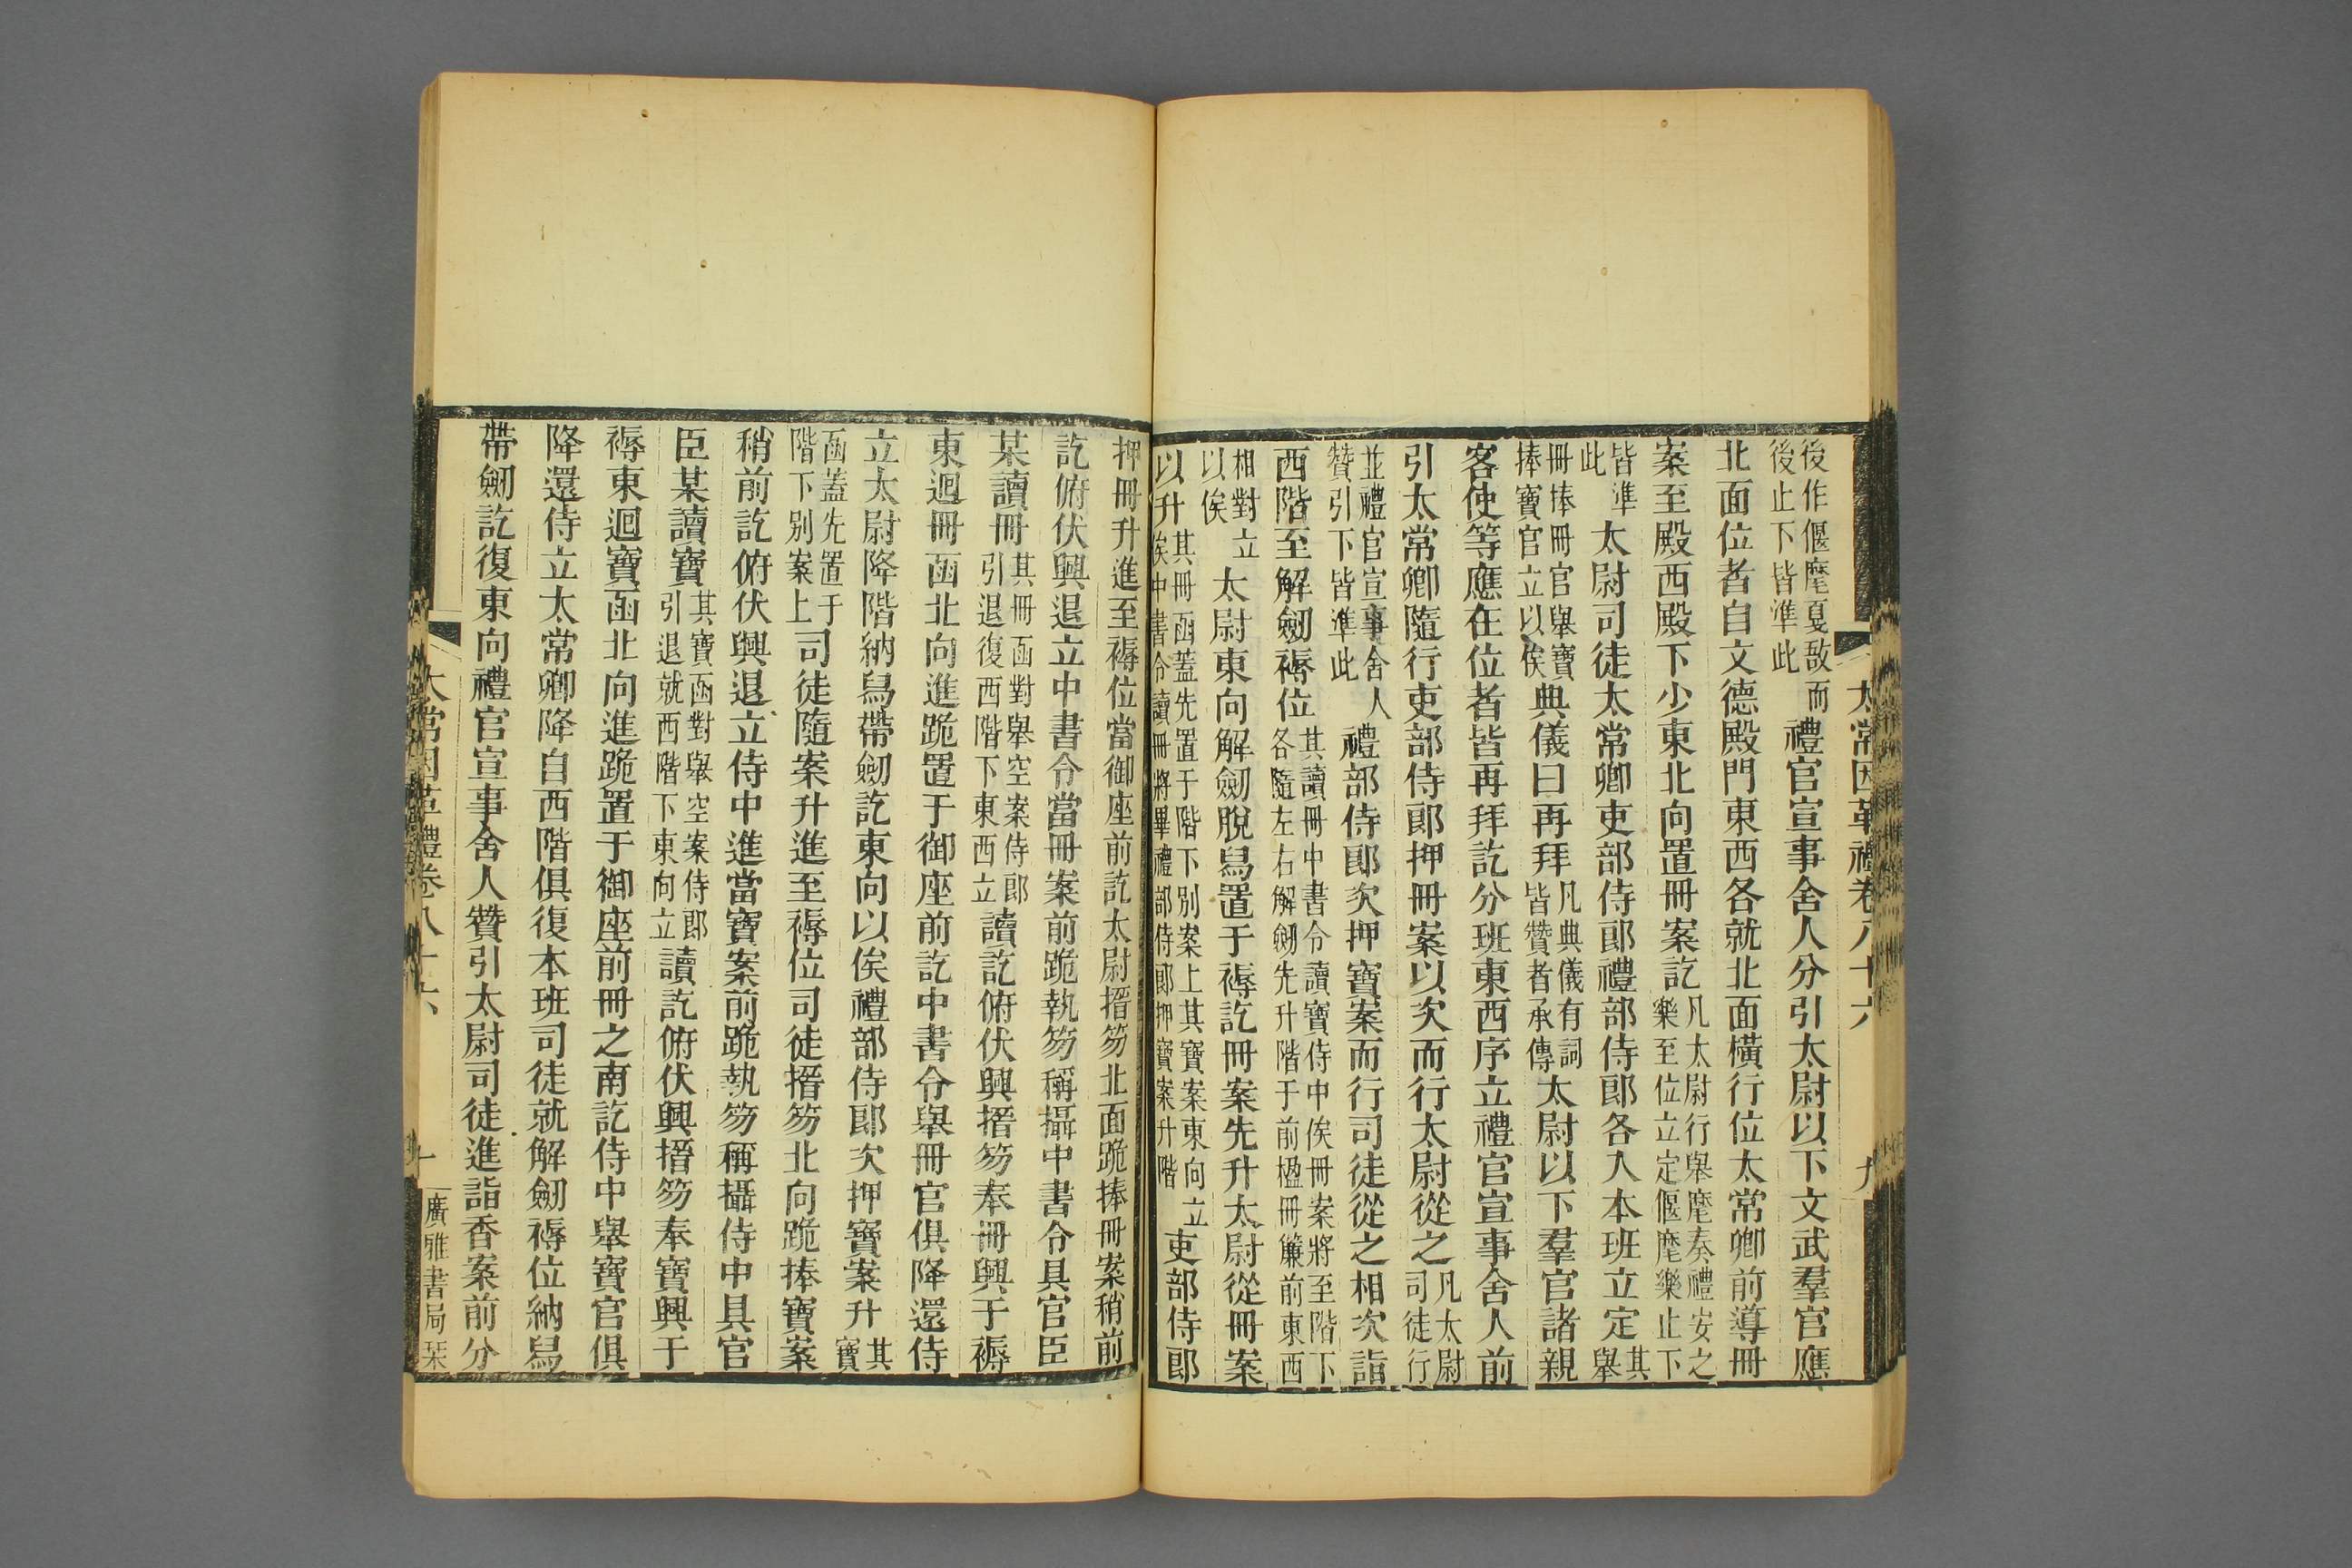 太常因革禮卷八十六 九
後作偃麾戛敔而後止下皆準此禮官宣事舍人分引太尉以下文武羣官應
北面位者自文德殿門東西各就北面橫行位太常卿前導冊
案至殿西殿下少東北向置冊案訖凡太尉行舉麾奏禮安之樂至位立定偃麾樂止下
皆準此太尉司徒太常卿吏部侍郎禮部侍郎各入本班立定其舉
冊捧冊官舉寶捧寶官立以俟典儀曰再拜凡典儀有詞皆贊者承傳太尉以下羣官諸親
客使等應在位者皆再拜訖分班東西序立禮官宣事舍人前
引太常卿隨行吏部侍郎押冊案以次而行太尉從之凡太尉司徒行
並禮官宣事舍人贊引下皆準此禮部侍郎次押寶案而行司徒從之相次詣
西階至解劒褥位其讀冊中書令讀寶侍中俟冊案將至階下各隨左右解劒先升階于前楹冊簾前東西
相對立以俟太尉東向解劒脫舄置于褥訖冊案先升太尉從冊案
以升其冊函蓋先置于階下別案上其寶案東向立俟中書令讀冊將畢禮部侍郎押寶案升階吏部侍郎
押冊升進至褥位當御座前訖太尉搢笏北面跪捧冊案稍前
訖俯伏興退立中書令當冊案前跪執笏稱攝中書令具官臣
某讀冊其冊函對舉空案侍郎引退復西階下東西立讀訖俯伏興搢笏奉冊興于褥
東迴冊函北向進跪置于御座前訖中書令舉冊官俱降還侍
立太尉降階納舄帶劒訖東向以俟禮部侍郎次押寶案升其寶
函蓋先置于階下別案上司徒隨案升進至褥位司徒搢笏北向跪捧寶案
稍前訖俯伏興退立侍中進當寶案前跪執笏稱攝侍中具官
臣某讀寶其寶函對舉空案侍郎引退就西階下東向立讀訖俯伏興搢笏奉寶興于
褥東迴寶函北向進跪置于御座前冊之南訖侍中舉寶官俱
降還侍立太常卿降自西階俱復本班司徒就解劒褥位納舄
帶劒訖復東向禮官宣事舍人贊引太尉司徒進詣香案前分
太常因革禮卷八十六 十 廣雅書局栞